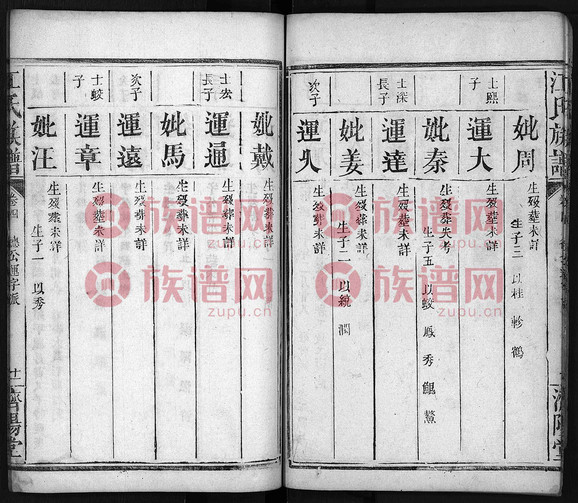 江氏族譜
濟陽堂
妣周
生歿葬未詳
生子三 以桂 軫 鶴
士熙子
運大
生歿葬未詳
妣秦
生歿葬失考
生子五 以蛟 鳳 秀 鯤 鰲
士深長子
運達
生歿葬未詳
妣姜
生歿葬未詳
生子二 以鏡 潤
次子
運久
生歿葬未詳
妣戴
生歿葬未詳
士宏長子
運通
生歿葬未詳
妣馬
生歿葬未詳
次子
運遠
生歿葬未詳
士蛟子
運章
生歿葬未詳
妣汪
生歿葬未詳
生子一 以秀
江氏族譜
卷四
德公運字派
十一
濟陽堂
族谱网
zupu.cn
族谱网
zupu.cn
族谱网
zupu.cn
族谱网
zupu.cn